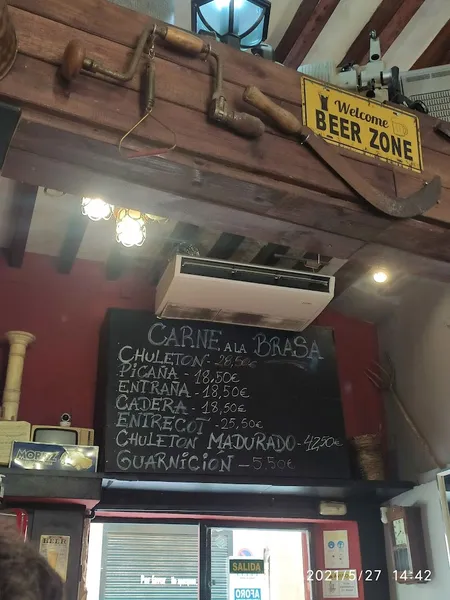 Welcome
BEER ZONE
CARNE A LA BRASA
CHULETON - 28,50€
PICAÑA - 18,50€
ENTRAÑA - 18,50€
CADERA - 18,50€
ENTRECOT - 25,50€
CHULETON MADURADO - 42,50€
GUARNICIÓN - 5,50€
MORITZ
BEER
SALIDA
AFORO
2021/5/27 14:42